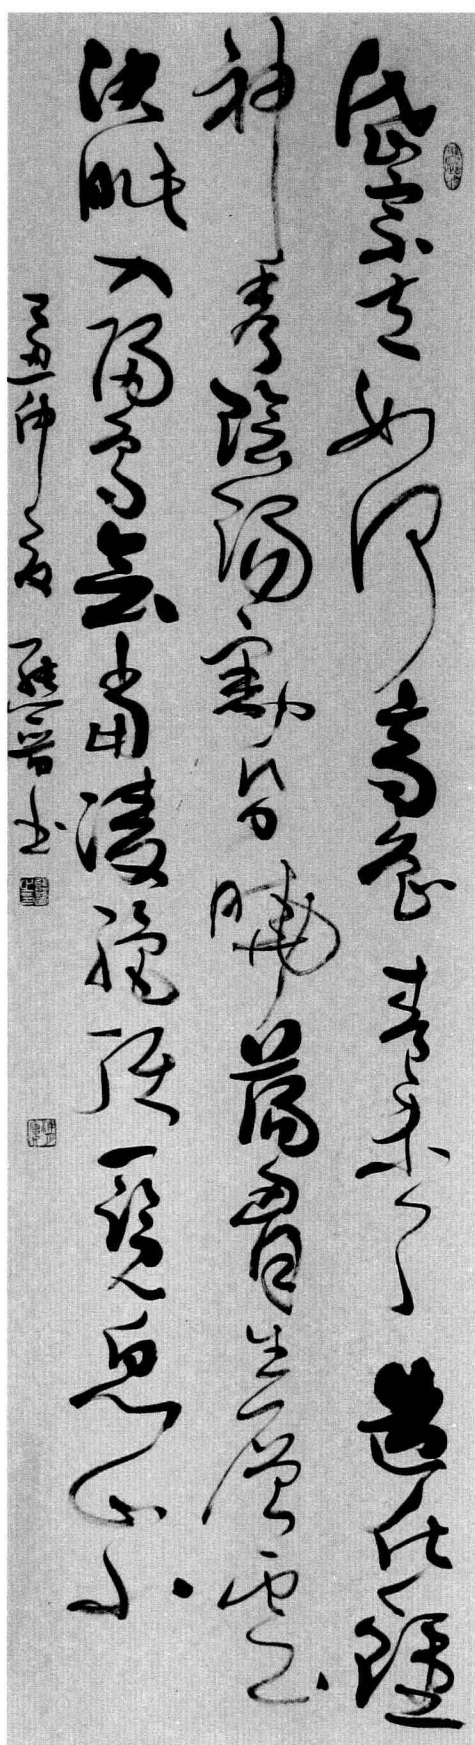 岱宗夫如何齊魯青未了造化鍾
神秀陰陽割昏曉蕩胷生層雲
決眦入歸鳥會當凌絕頂一覽衆山小
丑仲夏 晉書